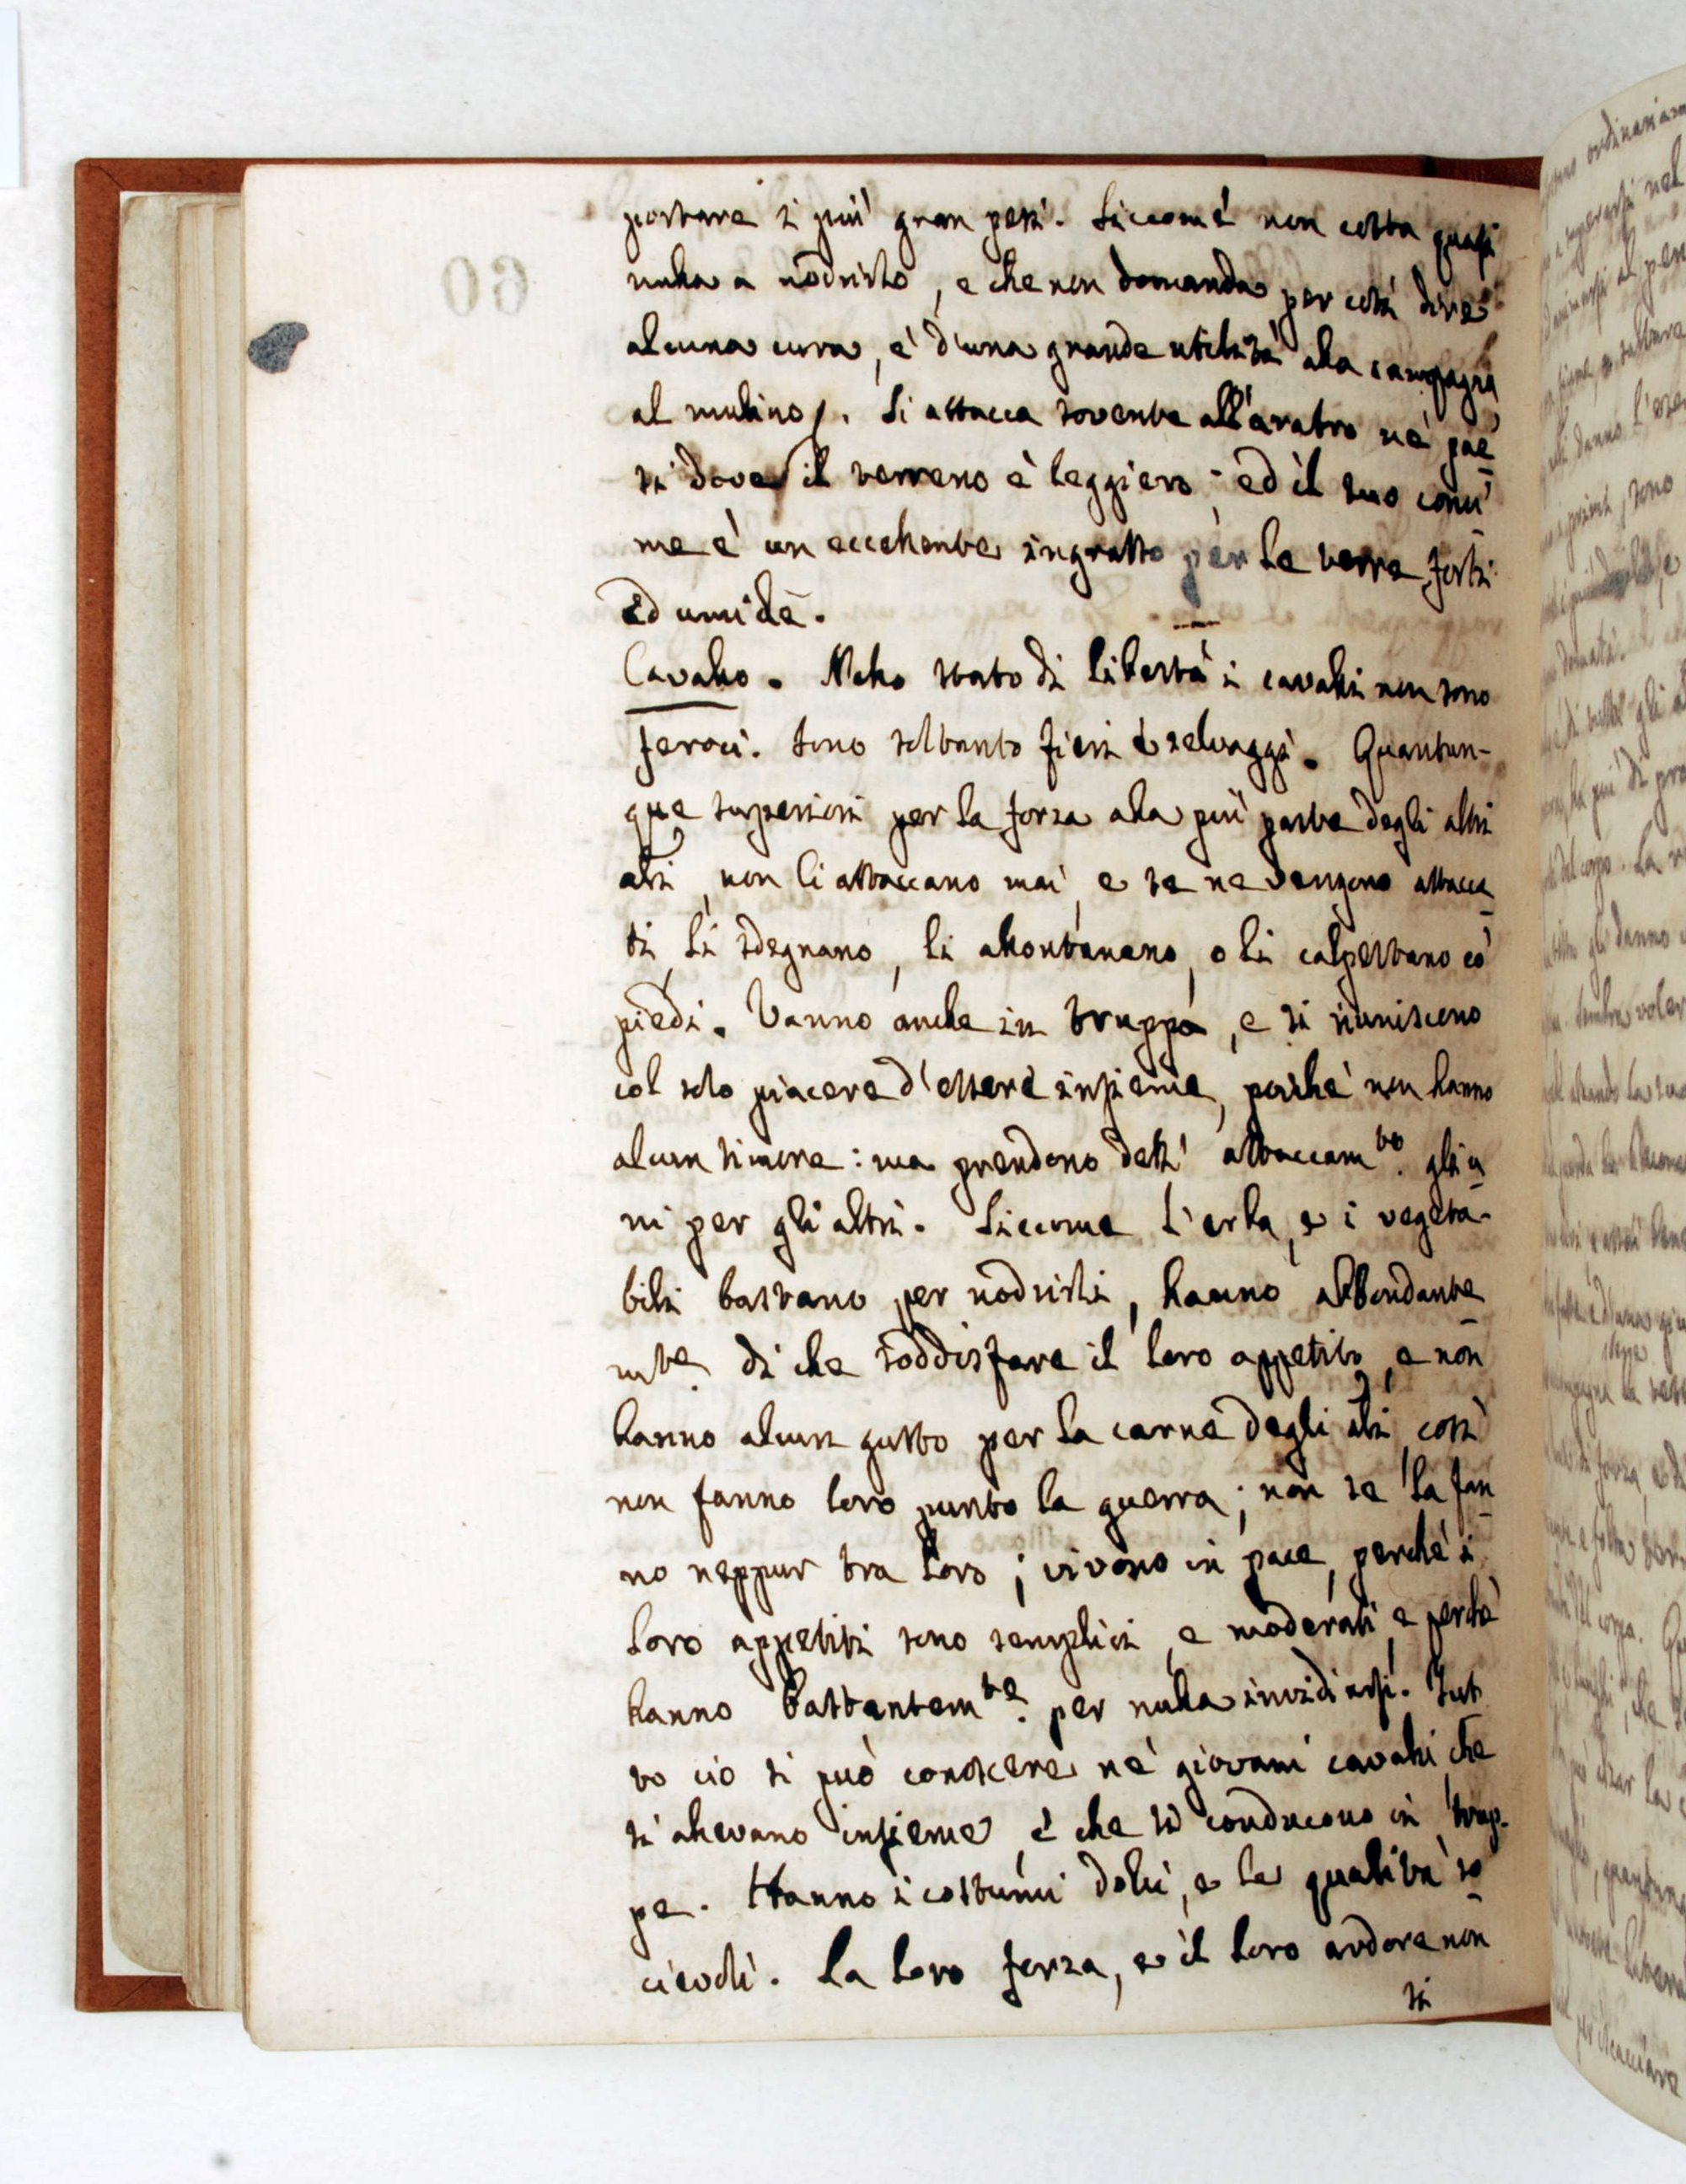 portare i più gran pesi. Siccome non costa quasi
nulla a nodrirlo, e che non domanda per così dire
alcuna cura, è d'una grande utilità alla campagna
al mulino. Si attacca sovente all'aratro ne' pae
si dove il terreno è leggiero; ed il suo conci
me è un eccellente ingrasso per le terre forti
ed umide.
Cavallo. Nello stato di libertà i cavalli non sono
feroci. Sono soltanto fieri e selvaggi. Quantun-
que superiori per la forza alla più parte degli altri
ali, non li attaccano mai, e se ne vengono attacca
ti, li sdegnano, li allontanano, o li calpestano co'
piedi. Vanno anche in truppa, e si riuniscono
col solo piacere d'essere insieme, poiché non hanno
alcun timore: ma prendono dessi attaccamto. gli u
ni per gli altri. Siccome l'erba, e i vegeta-
bili bastano per nodrirli, hanno abbondante
mte. di che soddisfare il loro appetito, e non
hanno alcun gusto per la carne degli ali, così
non fanno loro punto la guerra; non se la fan
no neppur tra loro; vivono in pace, perché i
loro appetiti sono semplici, e moderati, e perché
hanno bastantemte. per nulla invidiarsi. Tut
to ciò si può conoscere ne' giovani cavalli che
si allevano insieme, e che si conducono in trup-
pe. Hanno i costumi dolci, e le qualità so
cievoli. La loro forza, e il loro ardore non
si
60